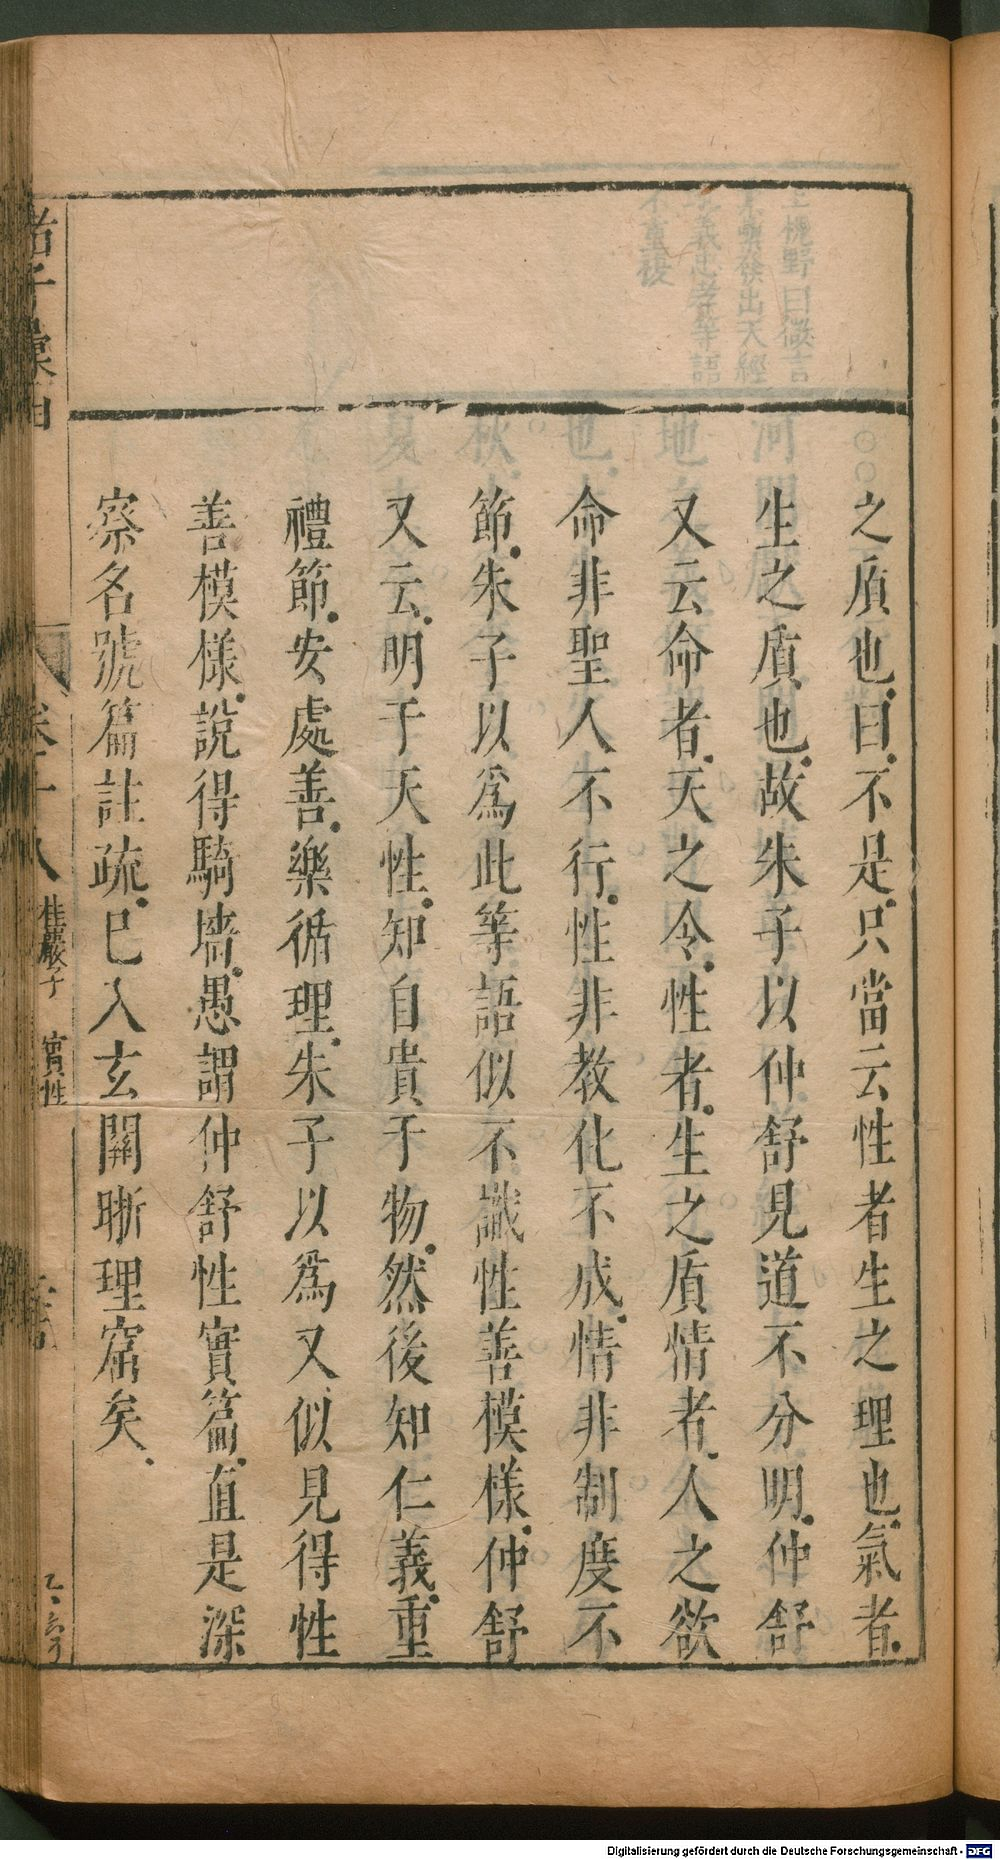 之質也曰不是只當云性者生之理也氣者
生之質也故朱子以仲舒見道不分明仲舒
又云命者天之令性者生之質情者人之欲
命非聖人不行性非教化不成情非制度不
節朱子以爲此等語似不識性善模樣仲舒
又云明于天性知自貴于物然後知仁義重
禮節安處善樂循理朱子以爲又似見得性
善模樣說得騎墻愚謂仲舒性實篇直是深
察名號篇註疏已入玄關晰理窟矣
諸子彙函
卷十八
桂巖子 實性
Digitalisierung gefördert durch die Deutsche Forschungsgemeinschaft - DFG